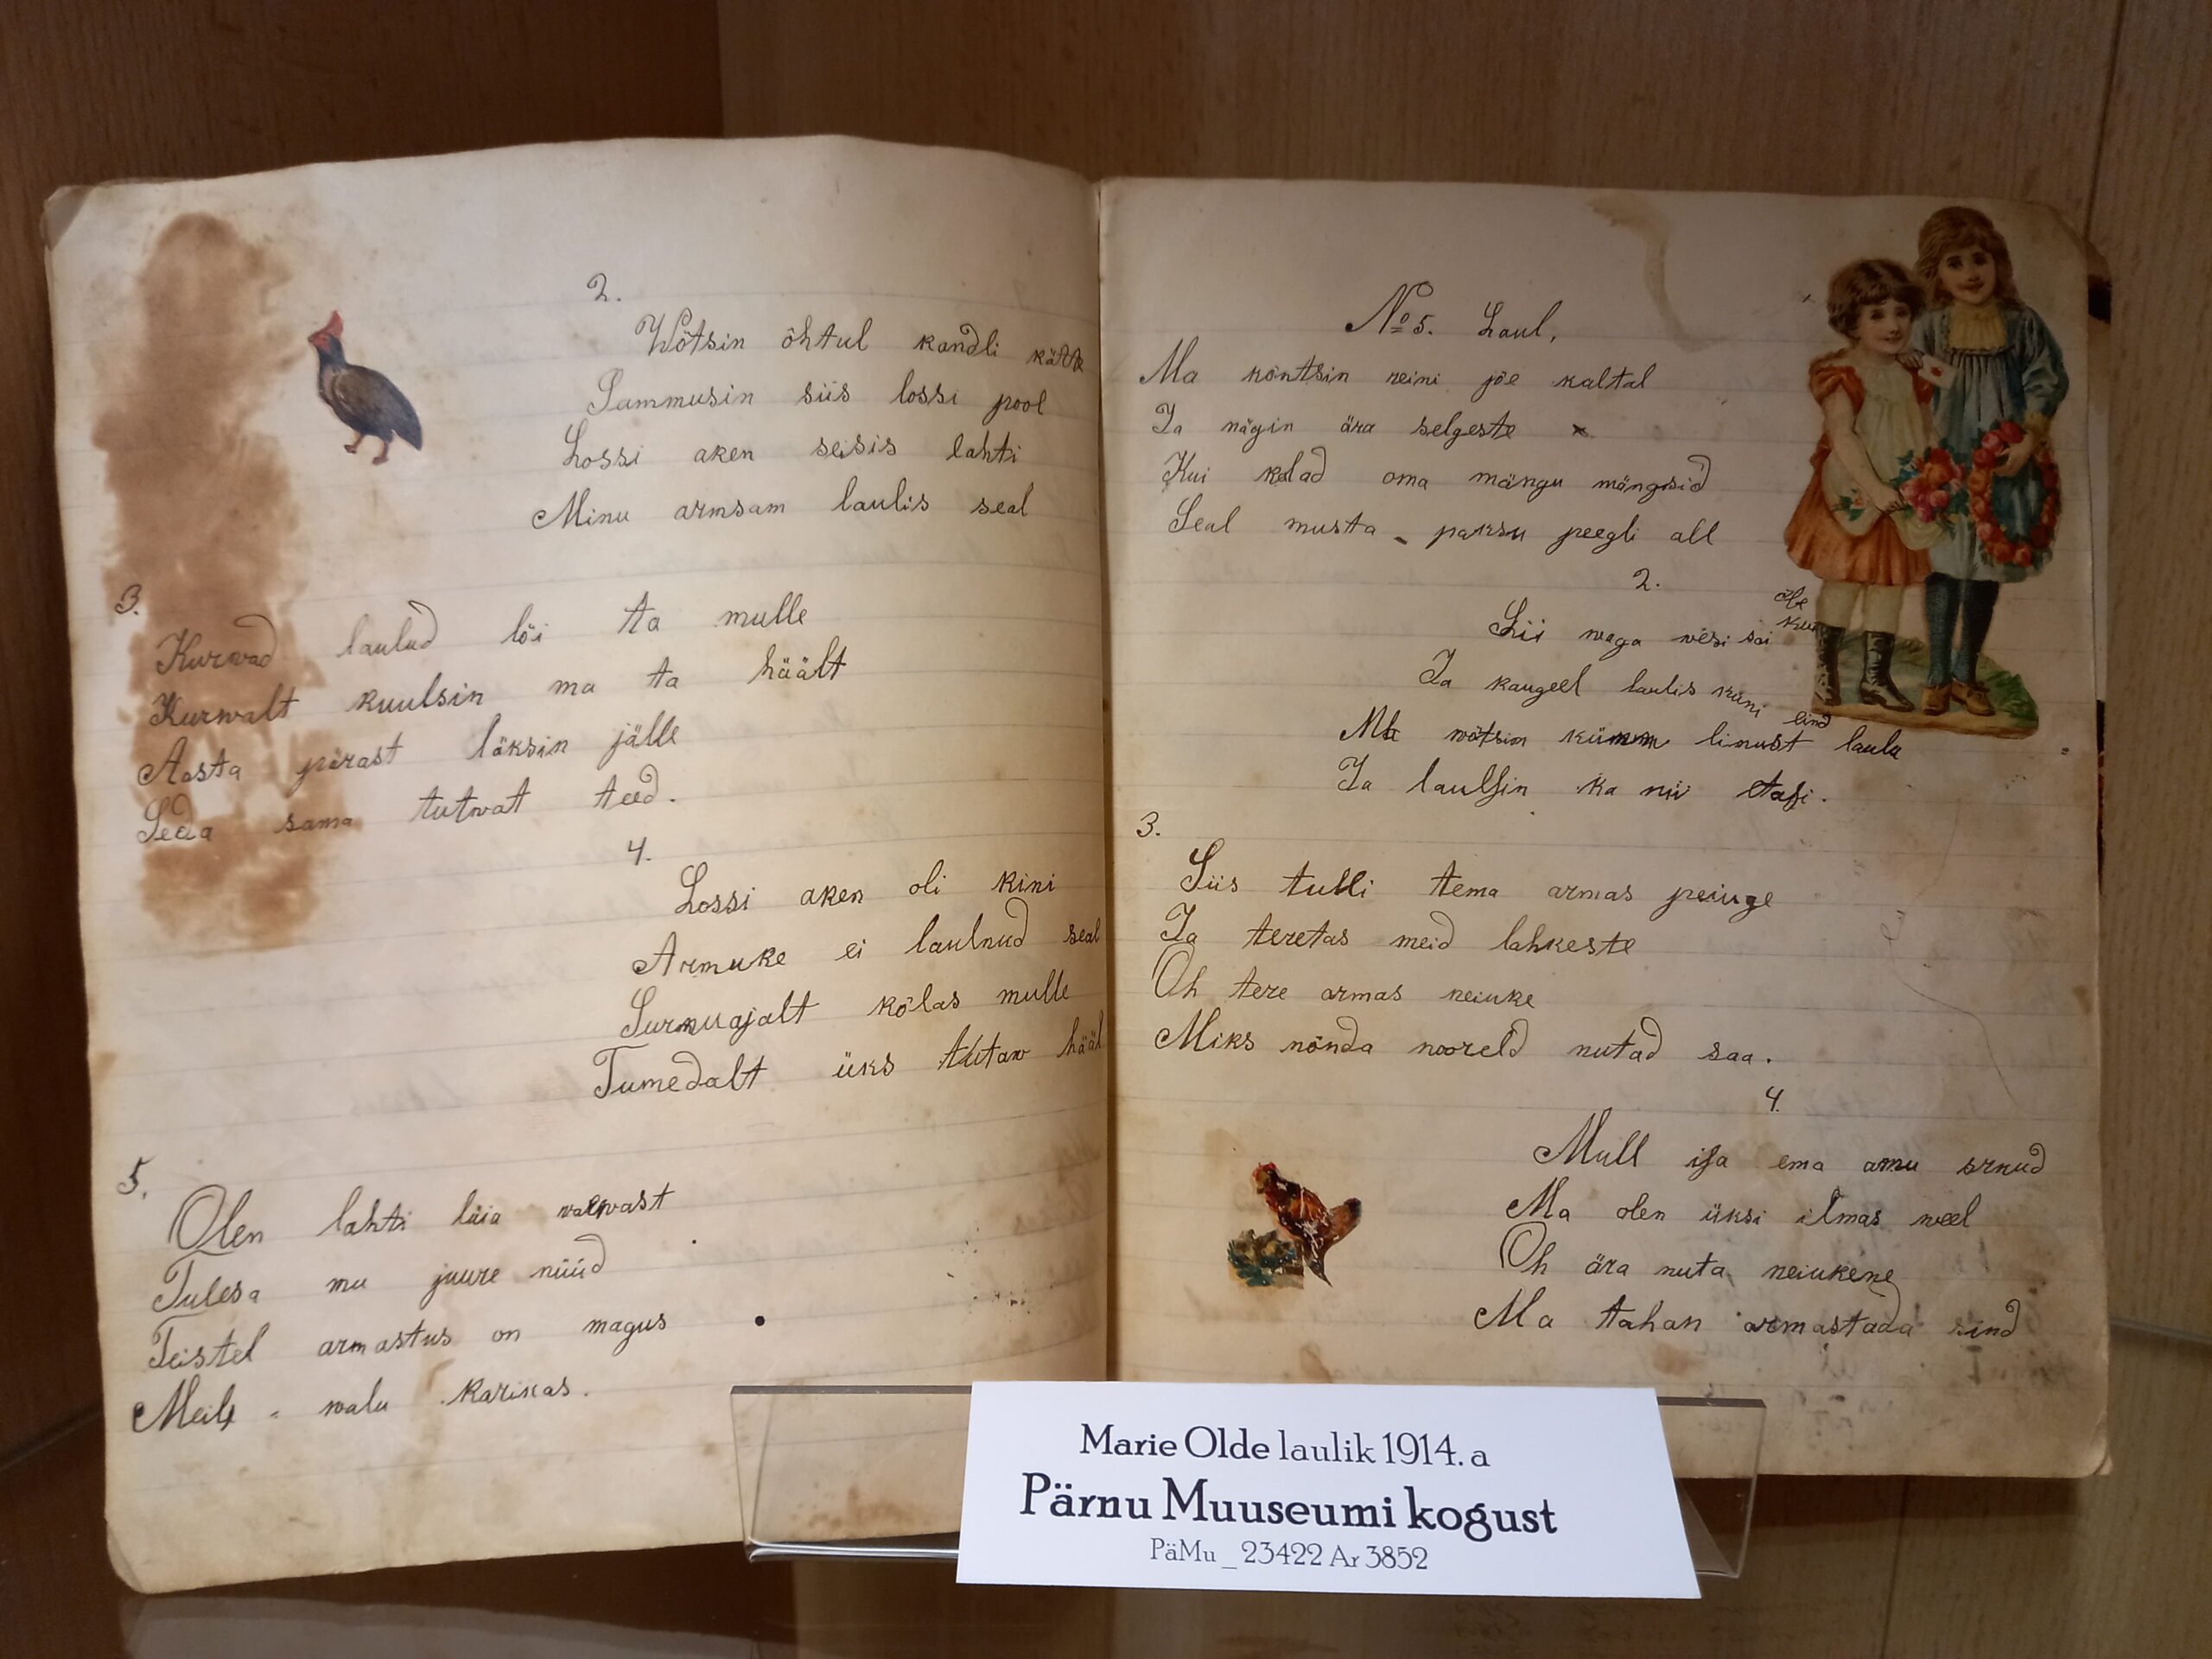 2.
Wõtsin õhtul kandli kätte
Sammusin siis lossi pool
Lossi aken seisis lahti
Minu armsam laulis seal
3.
Kurwad laulud lõi ta mulle
Kurwalt kuulsin ma ta häält
Aasta pärast läksin jälle
Seda sama tutwat teed.
4.
Lossi aken oli kini
Armuke ei laulnud seal
Surnuajalt kõlas mulle
Tumedalt üks tutaw hääl
5.
Olen lahti läia waewast
Tulesa mu juure nüüd
Teistel armastus on magus
Meile - walu karikas.
No 5. Laul,
Ma kõntsin reini jõe kaltal
Ja nägin ära selgeste
Kui kalad oma mängu mängisid
Seal musta - paksu peegli all
2.
Sii waga wesi sai
Ja kaugeel laulis lind
Ma wõtsin linust laulu
Ja laulsin ka nii tasi.
3.
Siis tulli tema armas peiuge
Ja teretas meid lahkeste
Oh tere armas neiuke
Miks nõnda nooreld nutad saa.
4.
Mull isa ema arnu srnud
Ma olen üksi ilmas weel
Oh ära nuta neiukene
Ma tahan armastada sind
Marie Olde laulik 1914. a
Pärnu Muuseumi kogust
PäMu _ 23422 Ar 3852